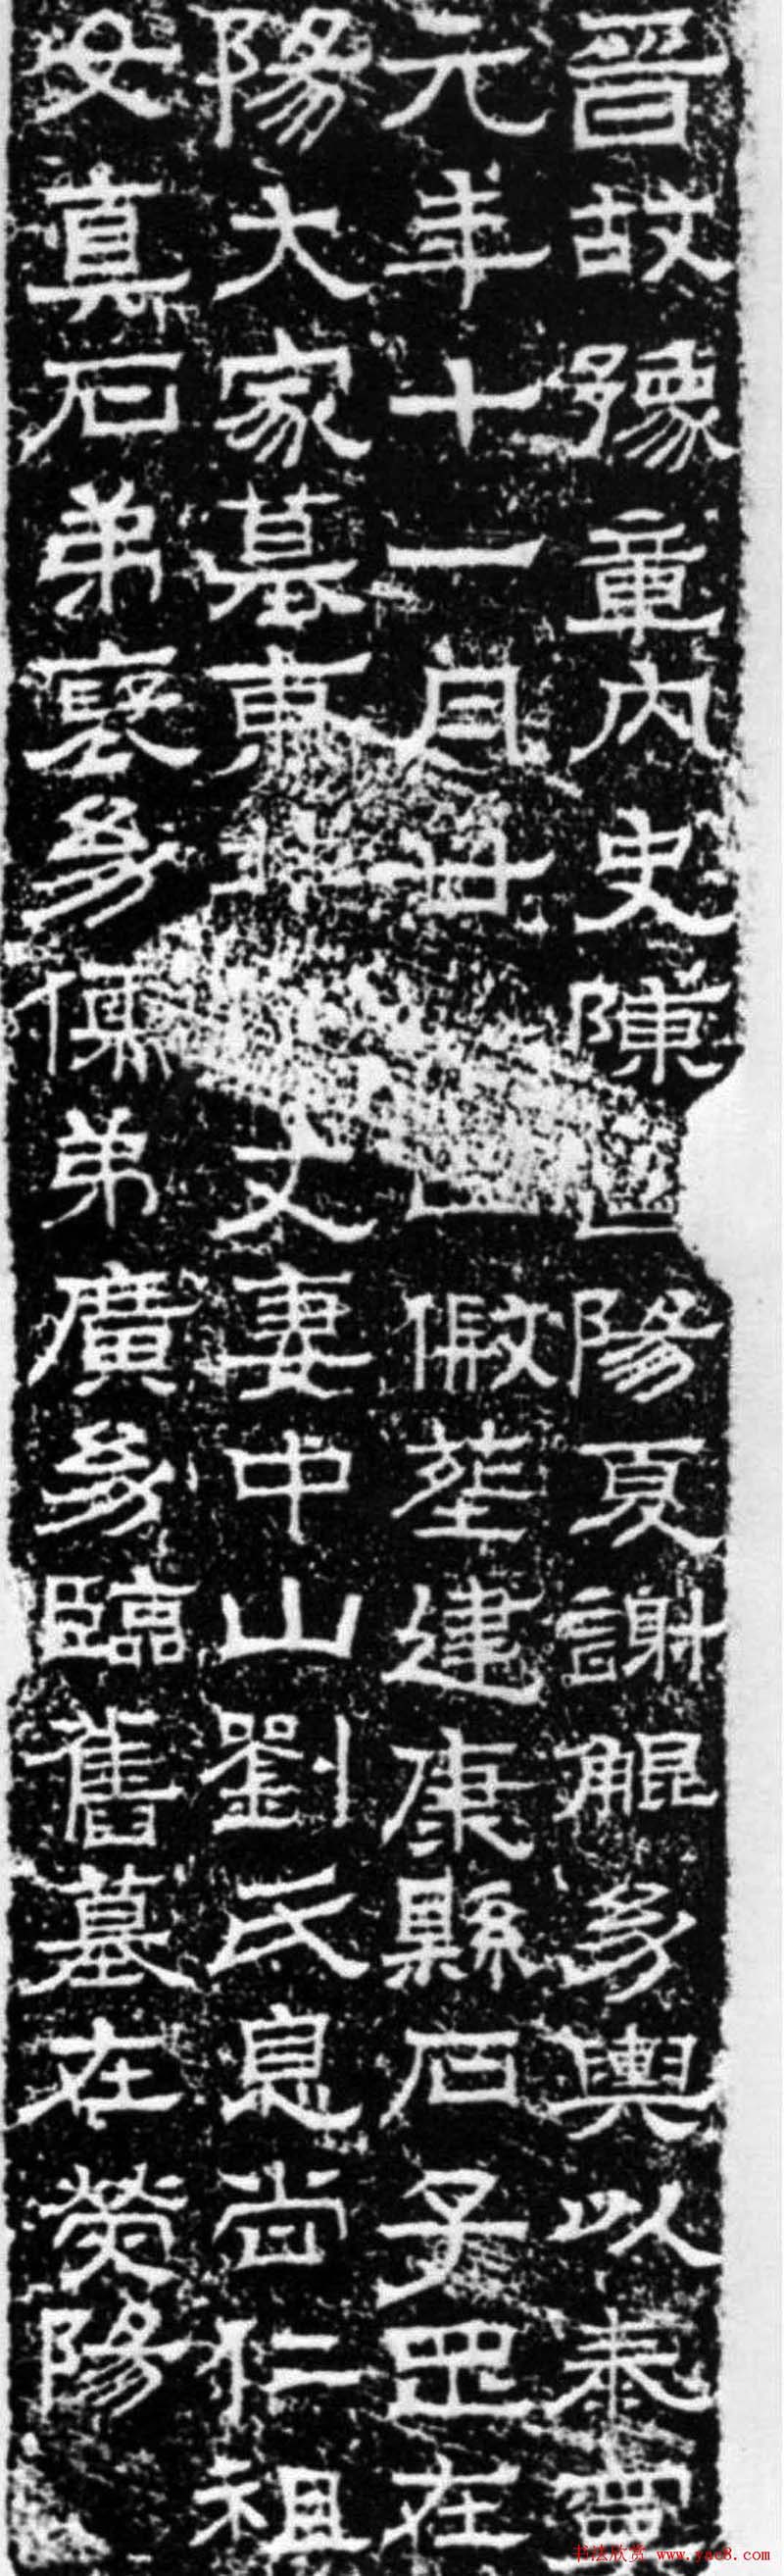 晉故豫章內史陳國陽夏謝鯤幼輿以泰寧
元年十一月廿亡假葬建康縣石子罡在
陽大家墓東北丈妻中山劉氏息尚仁祖
女真石弟裒幼儒弟廣幼臨舊墓在熒陽
书法欣赏 www.yac8.com